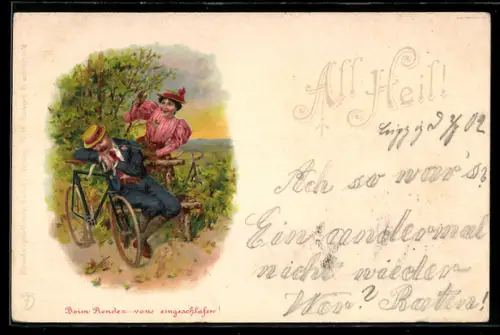 All Heil!
Leipzig d. 7/7 02
Ach so war's?
Ein andermal
nicht wieder
Wer? Raten!
Beim Rendez-vous eingeschlafen!